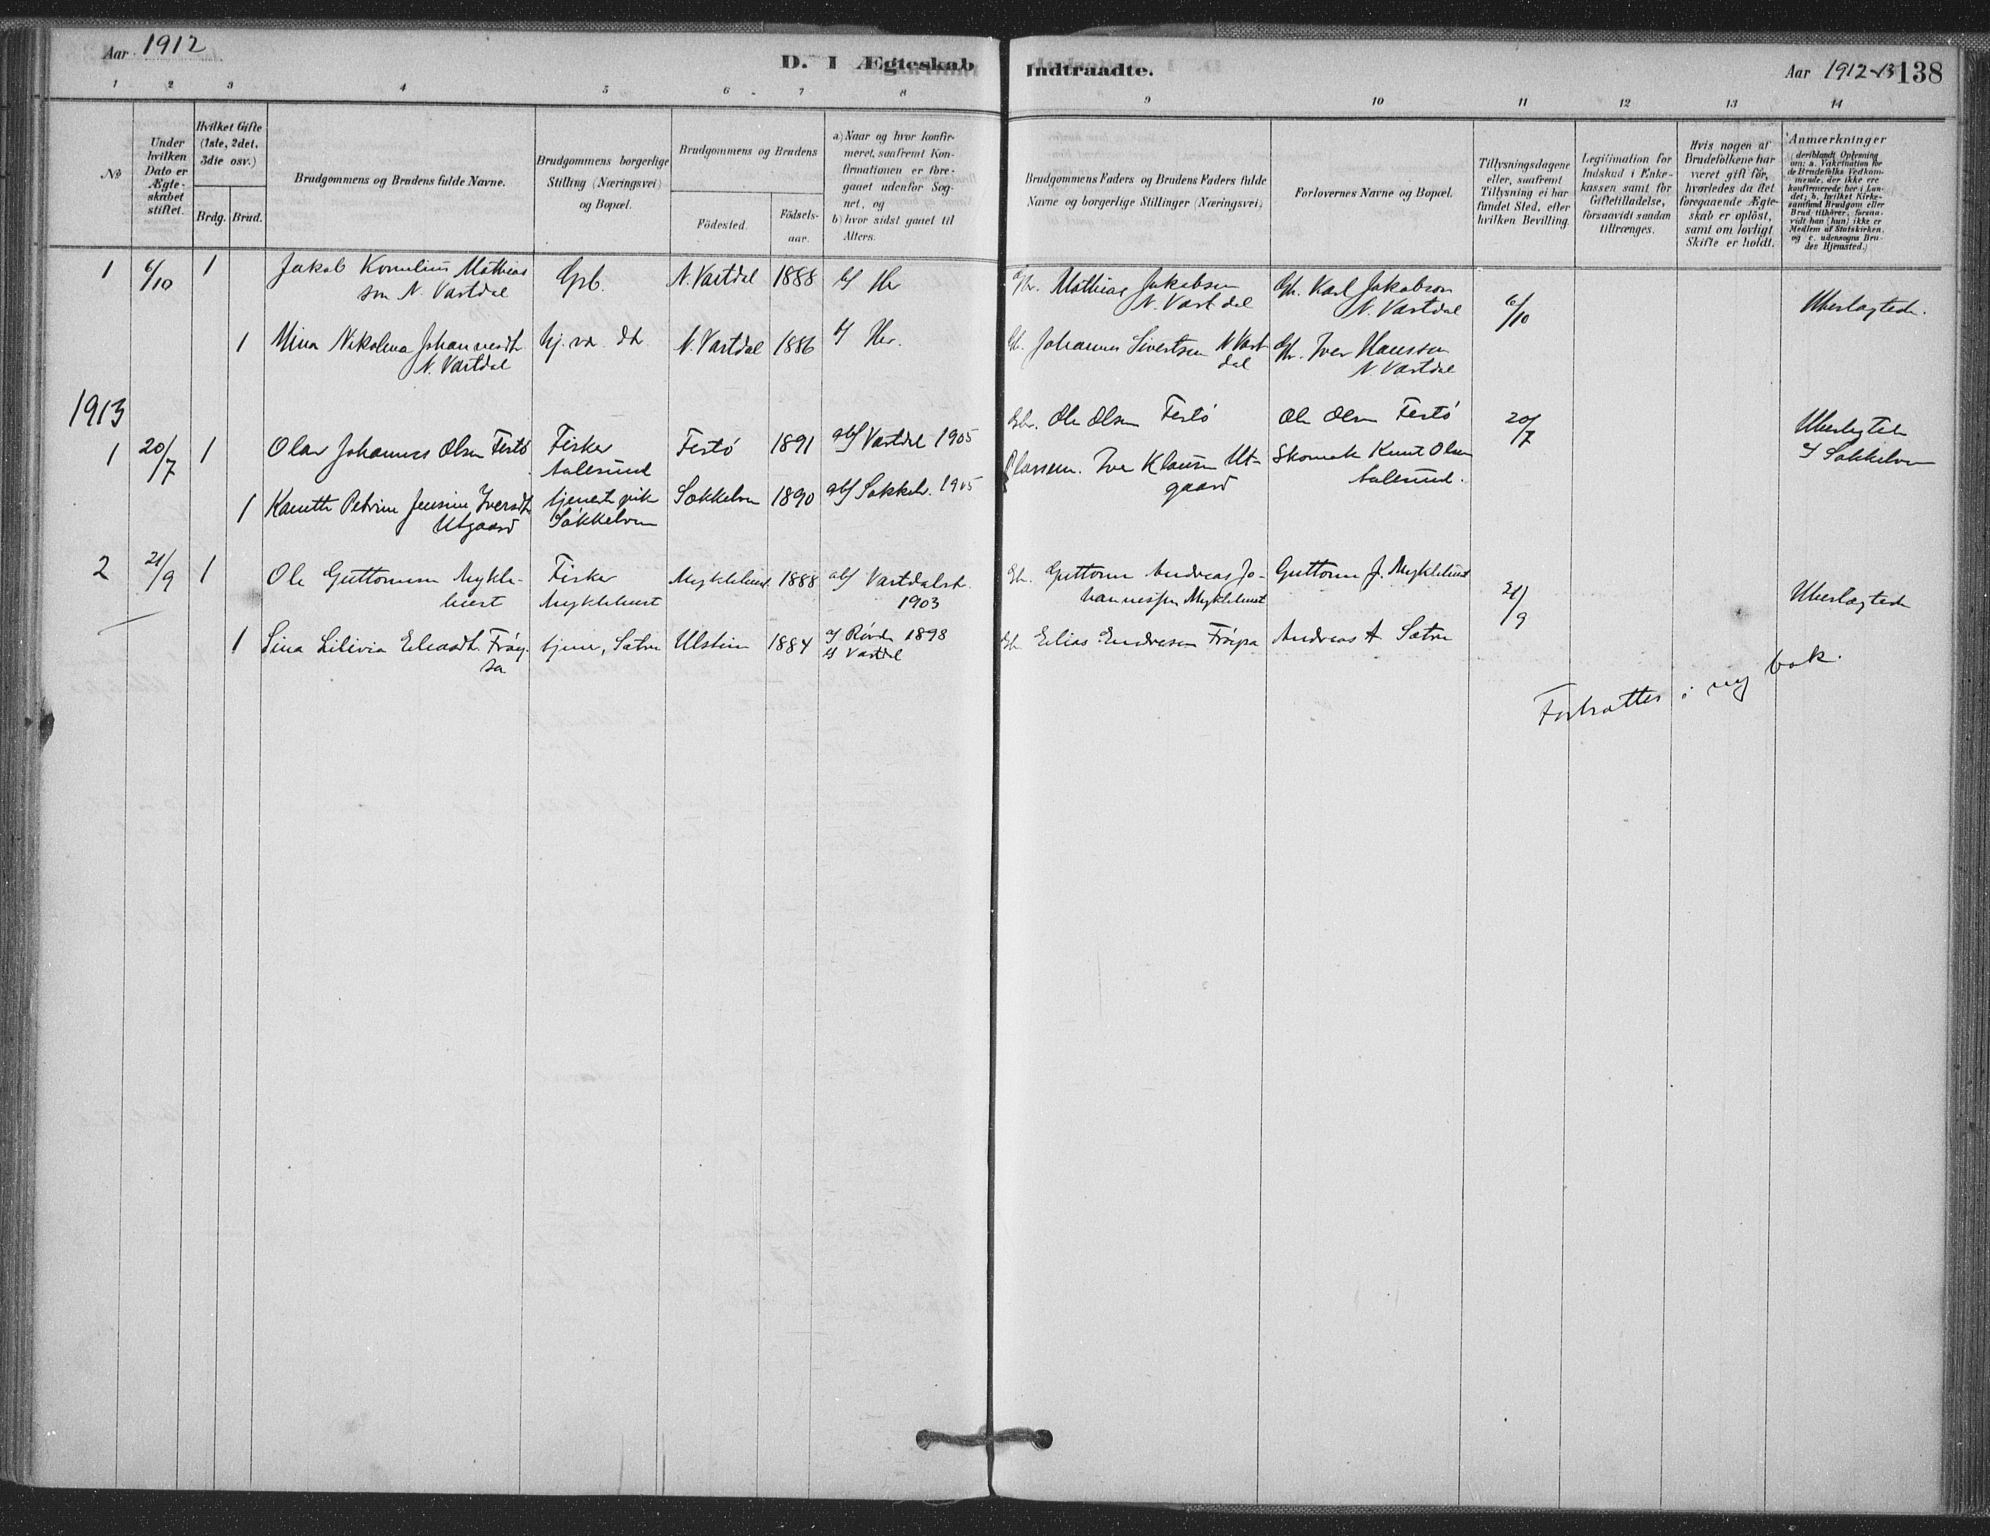 Aar 1912
D. I Ægteskab Indtraadte.
Aar 1912-13 138
1 2 3 4 5 6 7 8 9 10 11 12 13 14
No
Under hvilken Dato er Ægteskabet stiftet.
Hvilket Gifte (1ste, 2det, 3die osv.)
Brdg. Brud.
Brudgommens og Brudens fulde Navne.
Brudgommens borgerlige Stilling (Næringsvei) og Bopæl.
Brudgommens og Brudens
Födested.
Födselsaar.
a) Naar og hvor konfirmeret, saafremt Konfirmationen er foregaaet udenfor Sognet, og
b) hvor sidst gaaet til Alters.
Brudgommens Faders og Brudens Faders fulde Navne og borgerlige Stillinger (Næringsvei)
Forlovernes Navne og Bopæl.
Tillysningsdagene eller, saafremt Tillysning ei har fundet Sted, efter hvilken Bevilling.
Legitimation for Indskud i Enkekassen samt for Giftetilladelse, forsaavidt saadan tiltrænges.
Hvis nogen af Brudefolkene har været gift før, hvorledes da det foregaaende Ægteskab er oplöst, samt om lovligt Skifte er holdt.
Anmærkninger
(deriblandt Oplysning om: a. Vakcination for de Brudefolks Vedkommende, der ikke ere konfirmerede her i Landet; b. hvilket Kirkesamfund Brudgom eller Brud tilhörer, forsaavidt han (hun) ikke er Medlem af Statskirken, og c. udensogns Brudes Hjemsted.)
1 6/10 1 Jakob Kornelius Mathias
son N. Vartdal
Gpb. N. Vartdal 1888 b/ Her
Gbr. Mathias Jakobsen
N. Vartdal
Gbr. Karl Jakobson
N. Vartdal
6/10
Ubeslægtede.
1 Mina Nikolina Johannesdt.
N. Vartdal
hj. vr. dt. N. Vartdal 1886 b/ Her.
Gb. Johannes Sivertsen N. Vart
dal
Gbr. Iver Hanssen
N. Vartdal
1913
1 20/7 1 Olav Johannes Olsen Festö
Fisker
Aalesund
Festö 1891 a/b/ Vartdal 1905
Gbr. Ole Olsen Festö
Ole Olsen Festö
20/7
Ubeslegtede
1 Petrine Jensine Iversdt
Utgaard
Søkkelven
1890 1905
Iver Klausen Ut-
gaard
Skomak. Knut Olsen
Aalesund.
2 21/9 1 Ole Guttormsen Mykle-
bust
Fisker
Myklebust
Myklebust 1888 a/b/ Vartdalst.
1903
Gb. Guttorm Andreas Jo-
hannessen Myklebust
Guttorm J. Myklebust
21/9
Ubeslægtede
1 Sina Lilivia Eliasdt. Frøy-
sa
tjener, Sætre Ulstein 1884 a/ Rövde 1898
b/ Vartdal
Gb. Elias Endresen Fröysa
Andreas A Sætre
Fortsættes i ny bok.